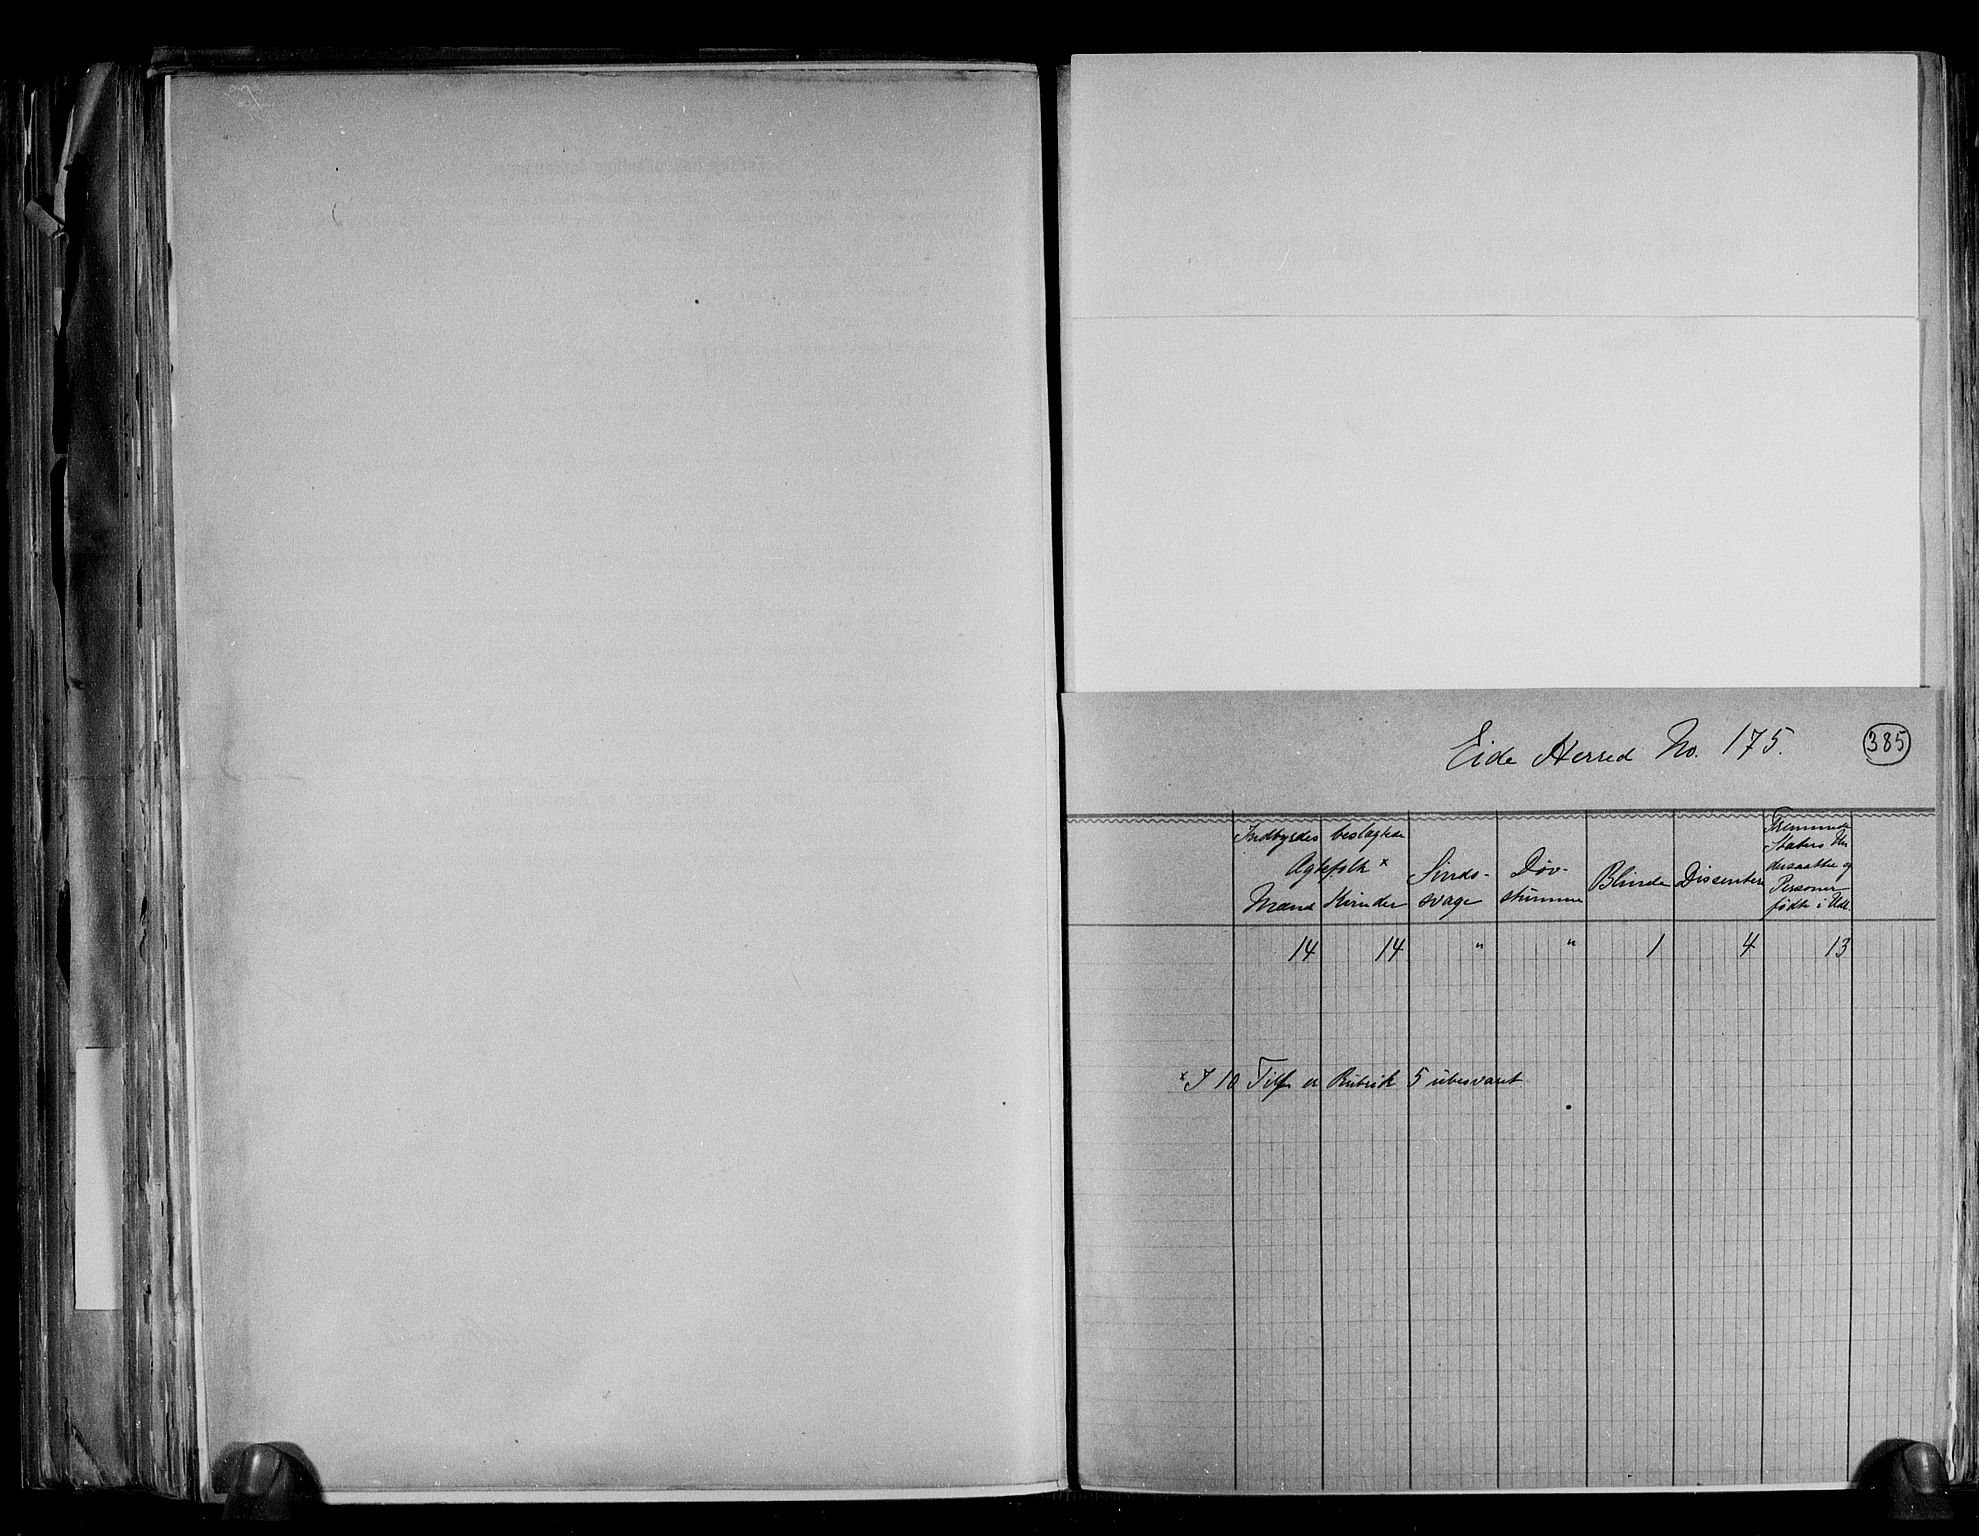 Eide Herred No. 175. 385
Indbyrdes beslægtede
Ægtefolk x
Mænd Kvinder
Sinds-
svage
Døv-
stumme
Blinde
Dissentere
Fremmede
Staters Un
dersaatter og
Personer
fødte i Udl.
14 14 " " 1 4 13
x I 10 Tilf. er Rubrik 5 ubesvaret